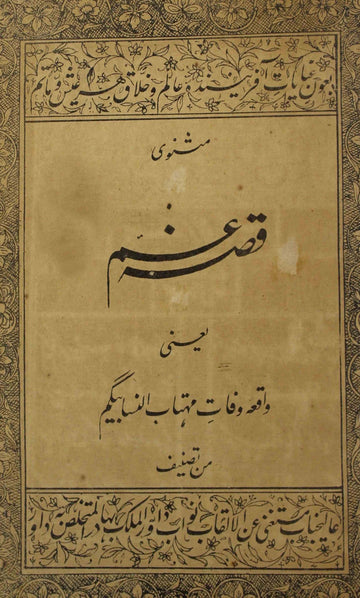 بعون عنایات آفرینندہ عالم و خلاق ہر عیش و ماتم
مثنوی
قصہ غم
یعنی
واقعہ وفات مہتاب النسا بیگم
من تصنیف
عالیجناب مستغنی عن الالقاب نواب داور الملک بہادر المتخلص بہ داور